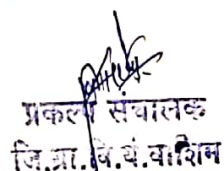 प्रकल्प संचालक
जि.ग्रा.वि.यं.वाशिम